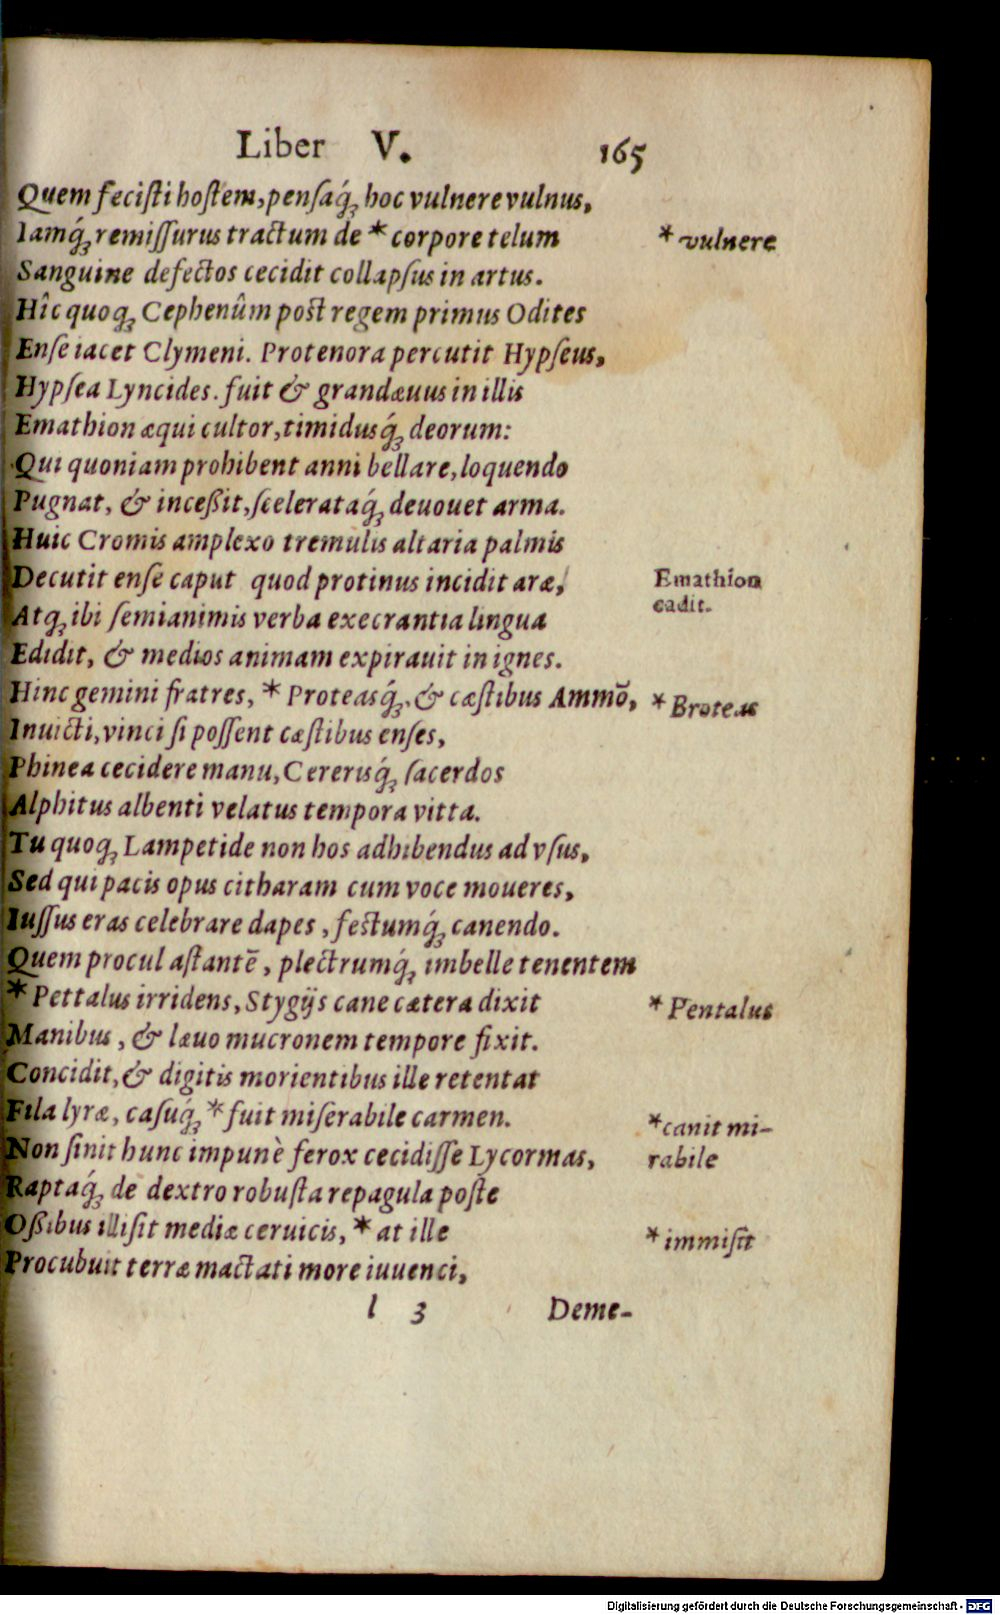 Liber V. 165
Quem fecisti hostem, pensaq́; hoc vulnere vulnus,
Iamq́; remissurus tractum de * corpore telum
* vulnere
Sanguine defectos cecidit collapsus in artus.
Hîc quoq; Cephenûm post regem primus Odites
Ense iacet Clymeni. Protenora percutit Hypseus,
Hypsea Lyncides. fuit & grandæuus in illis
Emathion æqui cultor, timidusq́; deorum:
Qui quoniam prohibent anni bellare, loquendo
Pugnat, & inceßit, scelerataq́; deuouet arma.
Huic Cromis amplexo tremulis altaria palmis
Decutit ense caput quod protinus incidit aræ,
Emathion
cadit.
Atq; ibi semianimis verba execrantia lingua
Edidit, & medios animam expirauit in ignes.
Hinc gemini fratres, * Proteasq́;, & cæstibus Ammõ,
* Broteas
Inuicti, vinci si possent cæstibus enses,
Phinea cecidere manu, Cererisq́; sacerdos
Alphitus albenti velatus tempora vitta.
Tu quoq; Lampetide non hos adhibendus ad vsus,
Sed qui pacis opus citharam cum voce moueres,
Iussus eras celebrare dapes, festumq́; canendo.
Quem procul astantē, plectrumq́; imbelle tenentem
* Pettalus irridens, Stygijs cane cætera dixit
* Pentalus
Manibus, & læuo mucronem tempore fixit.
Concidit, & digitis morientibus ille retentat
Fila lyræ, casuq́; * fuit miserabile carmen.
* canit mi-
rabile
Non sinit hunc impunè ferox cecidisse Lycormas,
Raptaq́; de dextro robusta repagula poste
Oßibus illisit mediæ ceruicis, * at ille
* immisit
Procubuit terræ mactati more iuuenci,
l 3 Deme-
Digitalisierung gefördert durch die Deutsche Forschungsgemeinschaft - DFG